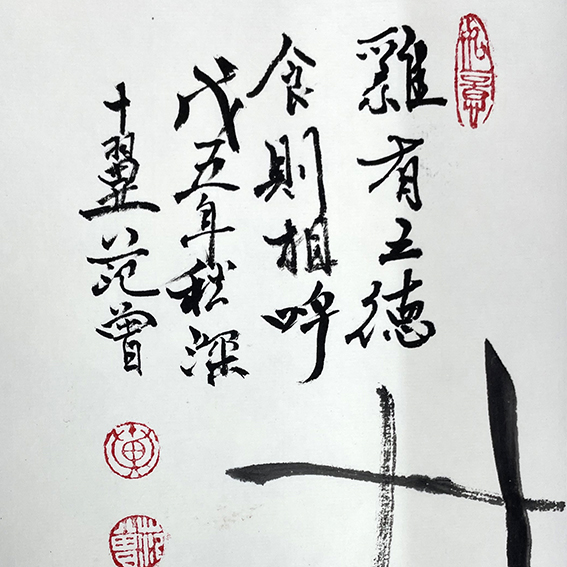 雞有五德
食則相呼
戊五年秋深
十翼范曾